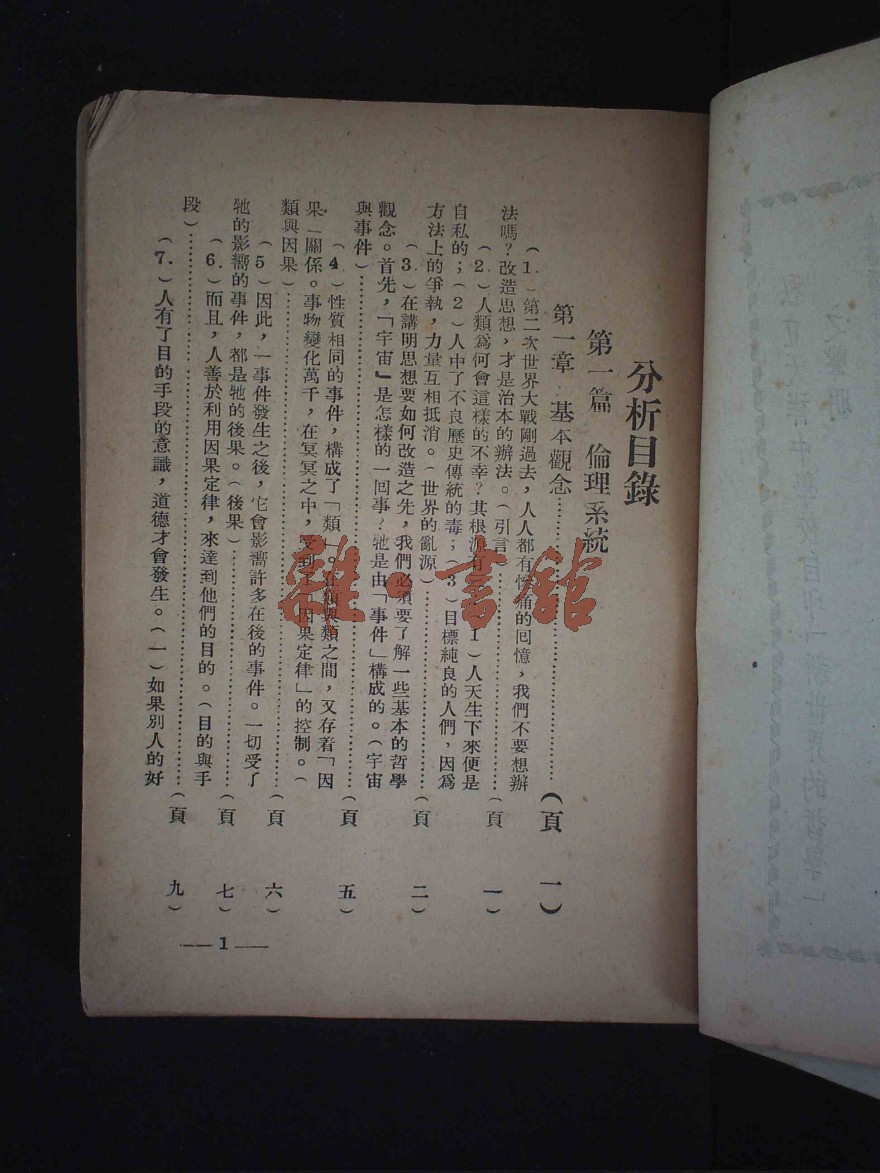 分析目錄
第一篇 倫理系統
第一章 基本觀念……(頁 一)
(1.)第二次世界大戰剛過去,人人都有慘痛的回憶,我們不要想辦
法嗎?改造思想,才是治本的辦法。(引言)……(頁 一)
(2.)人類爲何會這樣的不幸?其根源有 1)人天生下來便是
自私的;(2)人中了不良歷史傳統的毒;(3)目標純良的人們,因爲
方法上的爭執,力量互相抵消。(世界的亂源)……(頁 二)
(3.)在講明思想要如何改造之先,我們必須要了解一些基本的哲學
觀念。首先,「宇宙』是怎樣的一回事?牠是由「事件」構成的。(宇宙
與事件)……(頁 五)
(4)性質相同的事件,構成了「類」。在類與類之間,又存着「因
果」關係。事物變化萬千,在冥冥之中,受到了「因果定律」的控制。(
類與因果)……(頁 六)
(5)因此,一事件發生之後,它會影嚮許多在後的事件。一切受了
牠的影嚮的事件,都是牠的後果。(後果)……(頁 七)
(6.)而且,人善於利用因果定律,來達到他們的目的。(目的與手
段)……(頁 九)
(7.)人有了目的手段的意識,道德才會發生。(一)如果別人的好
— 1 —
雜·書館